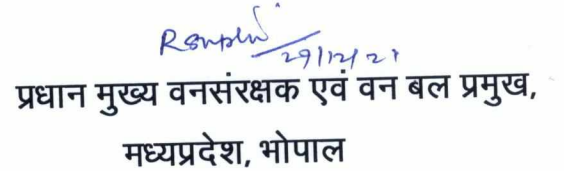 29/12/21
प्रधान मुख्य वनसंरक्षक एवं वन बल प्रमुख,
मध्यप्रदेश, भोपाल